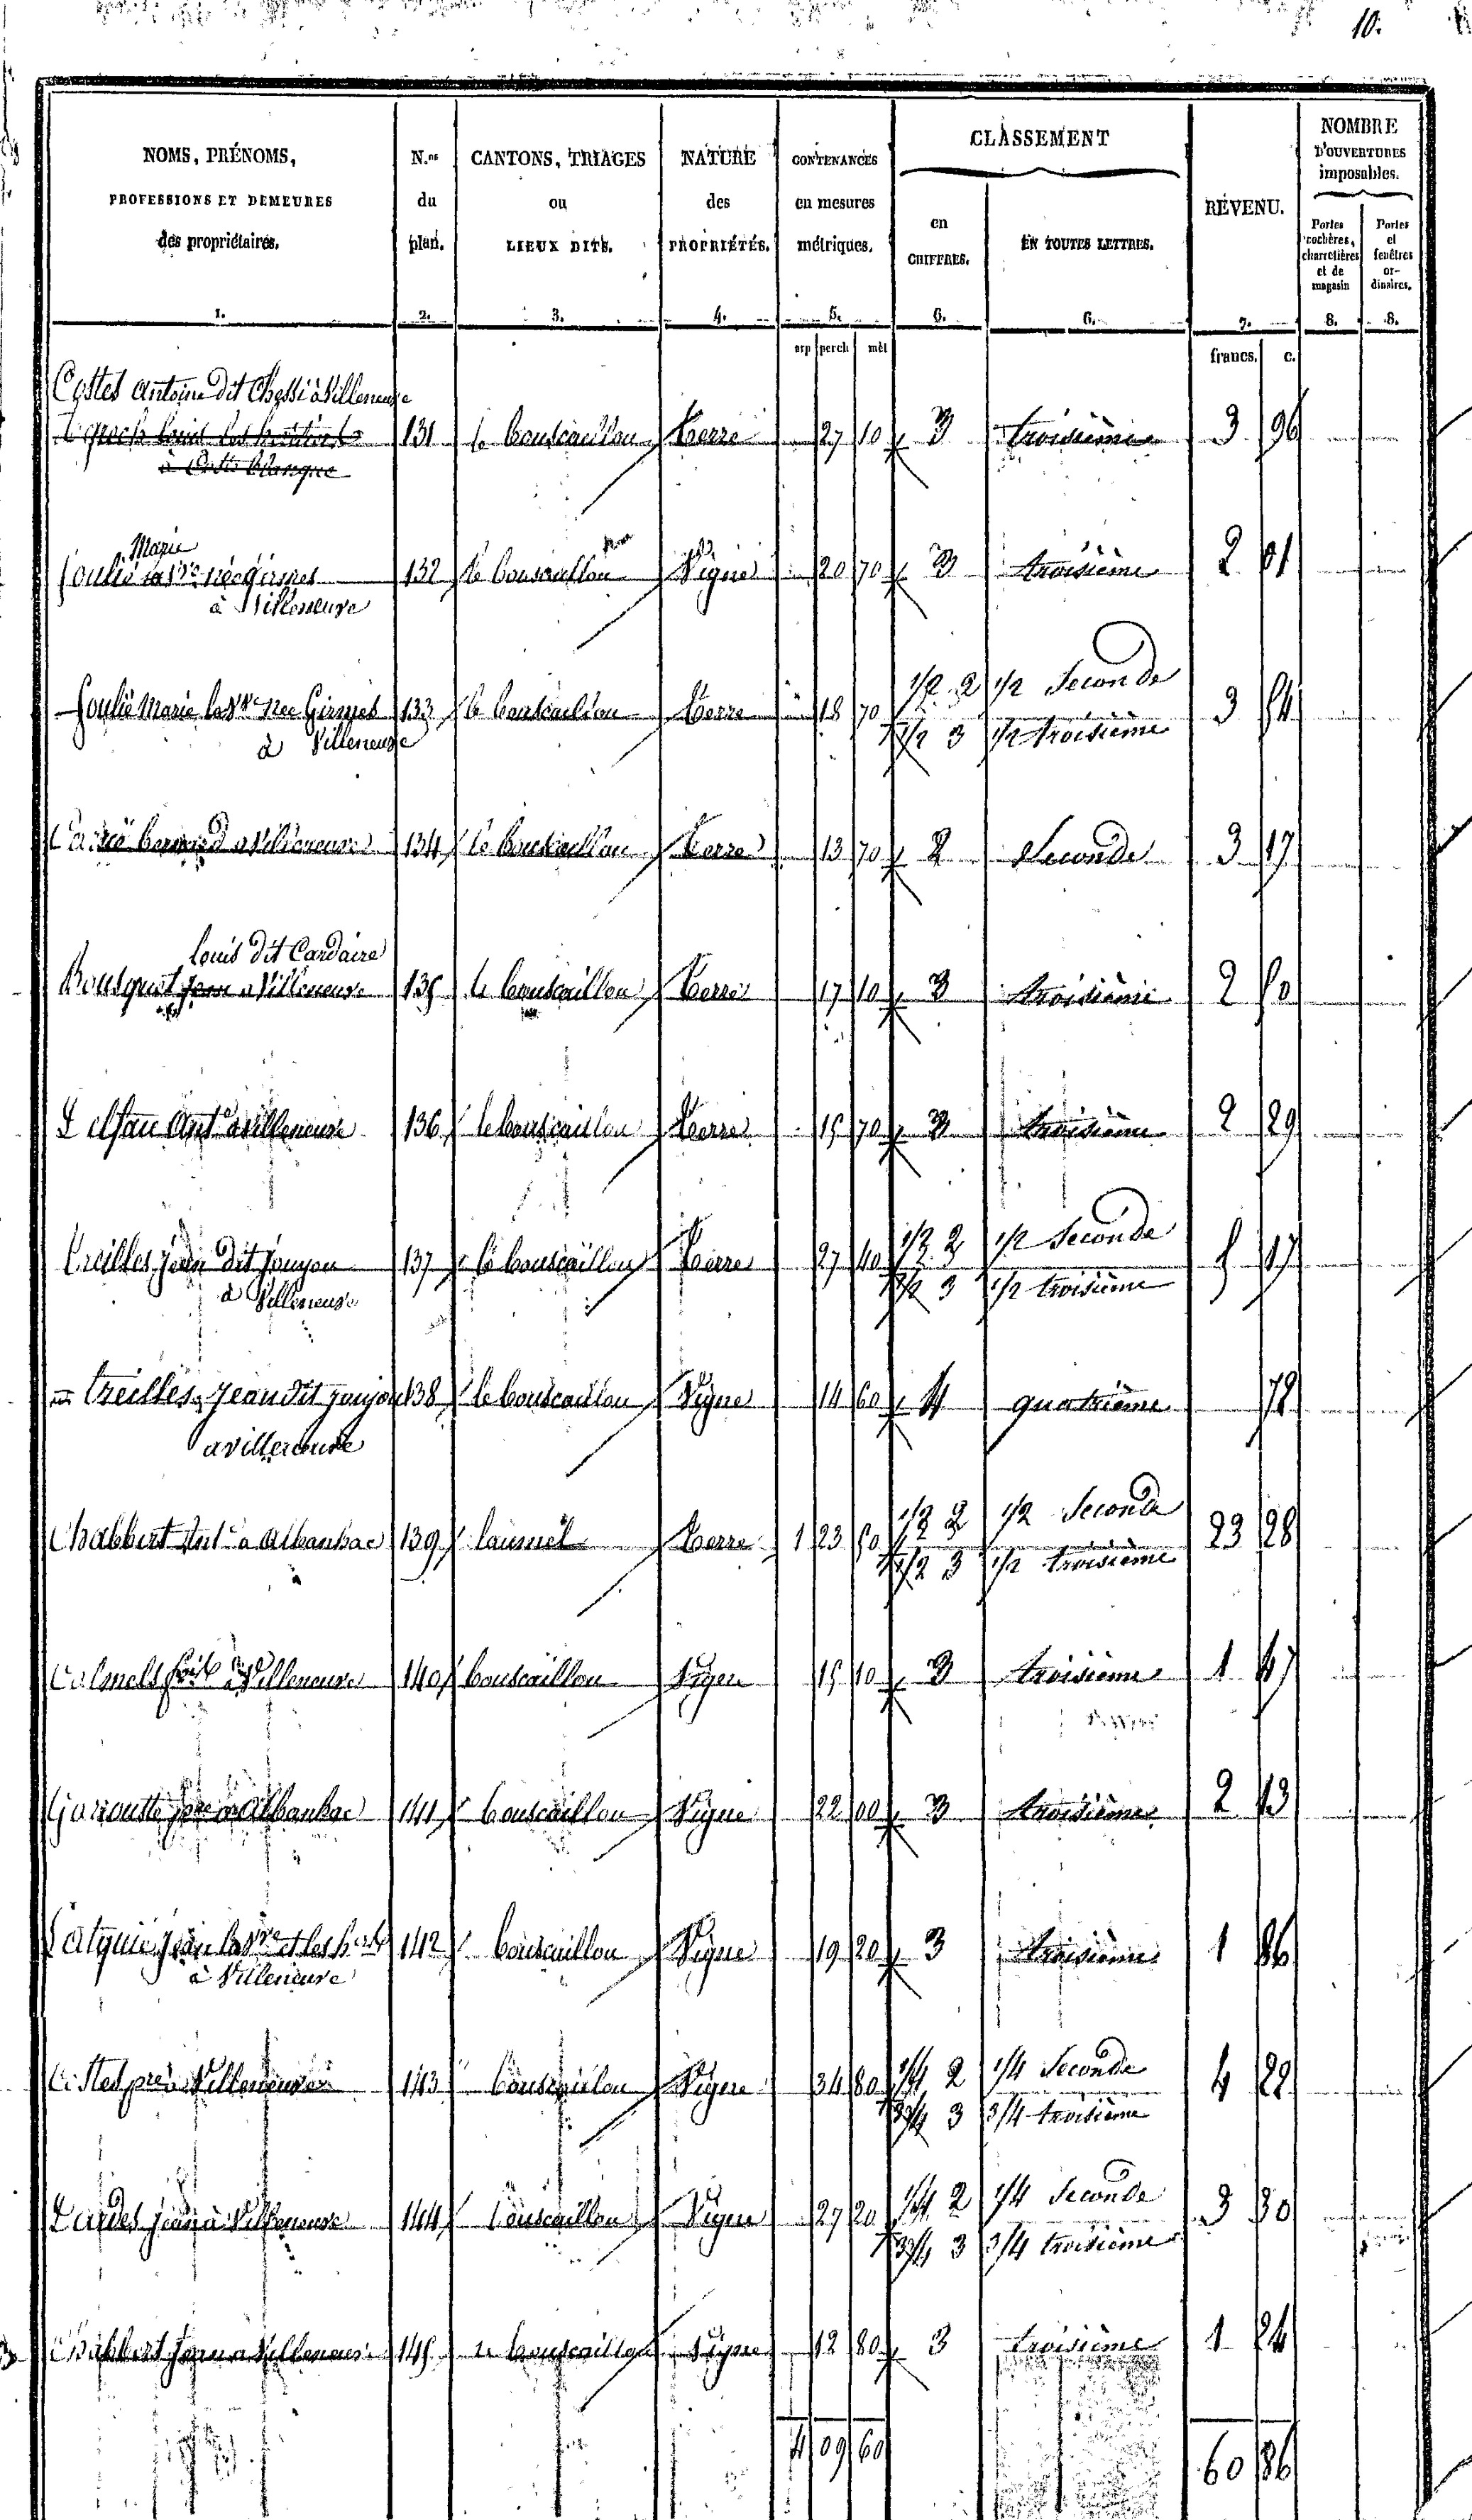 10.
NOMS, PRÉNOMS, PROFESSIONS ET DEMEURES des propriétaires. 1.
N.os du plan. 2.
CANTONS, TRIAGES ou LIEUX DITS. 3.
NATURE des PROPRIÉTÉS. 4.
CONTENANCES en mesures métriques. 5.
CLASSEMENT
en CHIFFRES. 6.
EN TOUTES LETTRES. 6.
REVENU. 7.
NOMBRE D'OUVERTURES imposables.
Portes cochères, charretières et de magasin 8.
Portes et fenêtres ordinaires. 8.
arp perch mèt francs. c.
Costes Antoine dit à Villeneuve
131 le bouscaillou terre 27 10 3 troisième 3 96
Marie
Soulié la Vve née
132 le bouscaillou Vigne 20 70 3 troisième 2 01
à Villeneuve
Soulié Marie la Vve née
133 le bouscaillou terre 18 70 1/2 2 1/2 Seconde 3 54
à Villeneuve
1/2 3 1/2 troisième
à Villeneuve 134 le bouscaillou terre 13 70 2 Seconde 3 17
louis dit Cardaire
Bousquet à Villeneuve 135 le bouscaillou terre 17 10 3 troisième 2 50
Ante à Villeneuve 136 le bouscaillou terre 15 70 3 troisième 2 29
Treilles jean dit janjou 137 le bouscaillou terre 27 40 1/2 2 1/2 Seconde 5 17
à Villeneuve
1/2 3 1/2 troisième
Treilles jean dit janjou 138 le bouscaillou Vigne 14 60 4 quatrième 72
a villeneuve
Chabbert Ante a Albanhac 139 terre 1 23 50 1/2 2 1/2 Seconde 23 28
1/2 3 1/2 troisième
Calmels à Villeneuve 140 bouscaillou Vigne 15 10 3 troisième 1 47
Garouste a Albanhac 141 bouscaillou Vigne 22 00 3 troisième 2 13
jean la Vve et les hers 142 bouscaillou Vigne 19 20 3 troisième 1 86
à Villeneuve
Costes à Villeneuve 143 bouscaillou Vigne 34 80 1/4 2 1/4 Seconde 4 22
3/4 3 3/4 troisième
jean à Villeneuve 144 bouscaillou Vigne 27 20 1/4 2 1/4 Seconde 3 30
3/4 3 3/4 troisième
Chabbert jean a Villeneuve 145 le bouscaillou Vigne 12 80 3 troisième 1 24
4 09 60 60 86